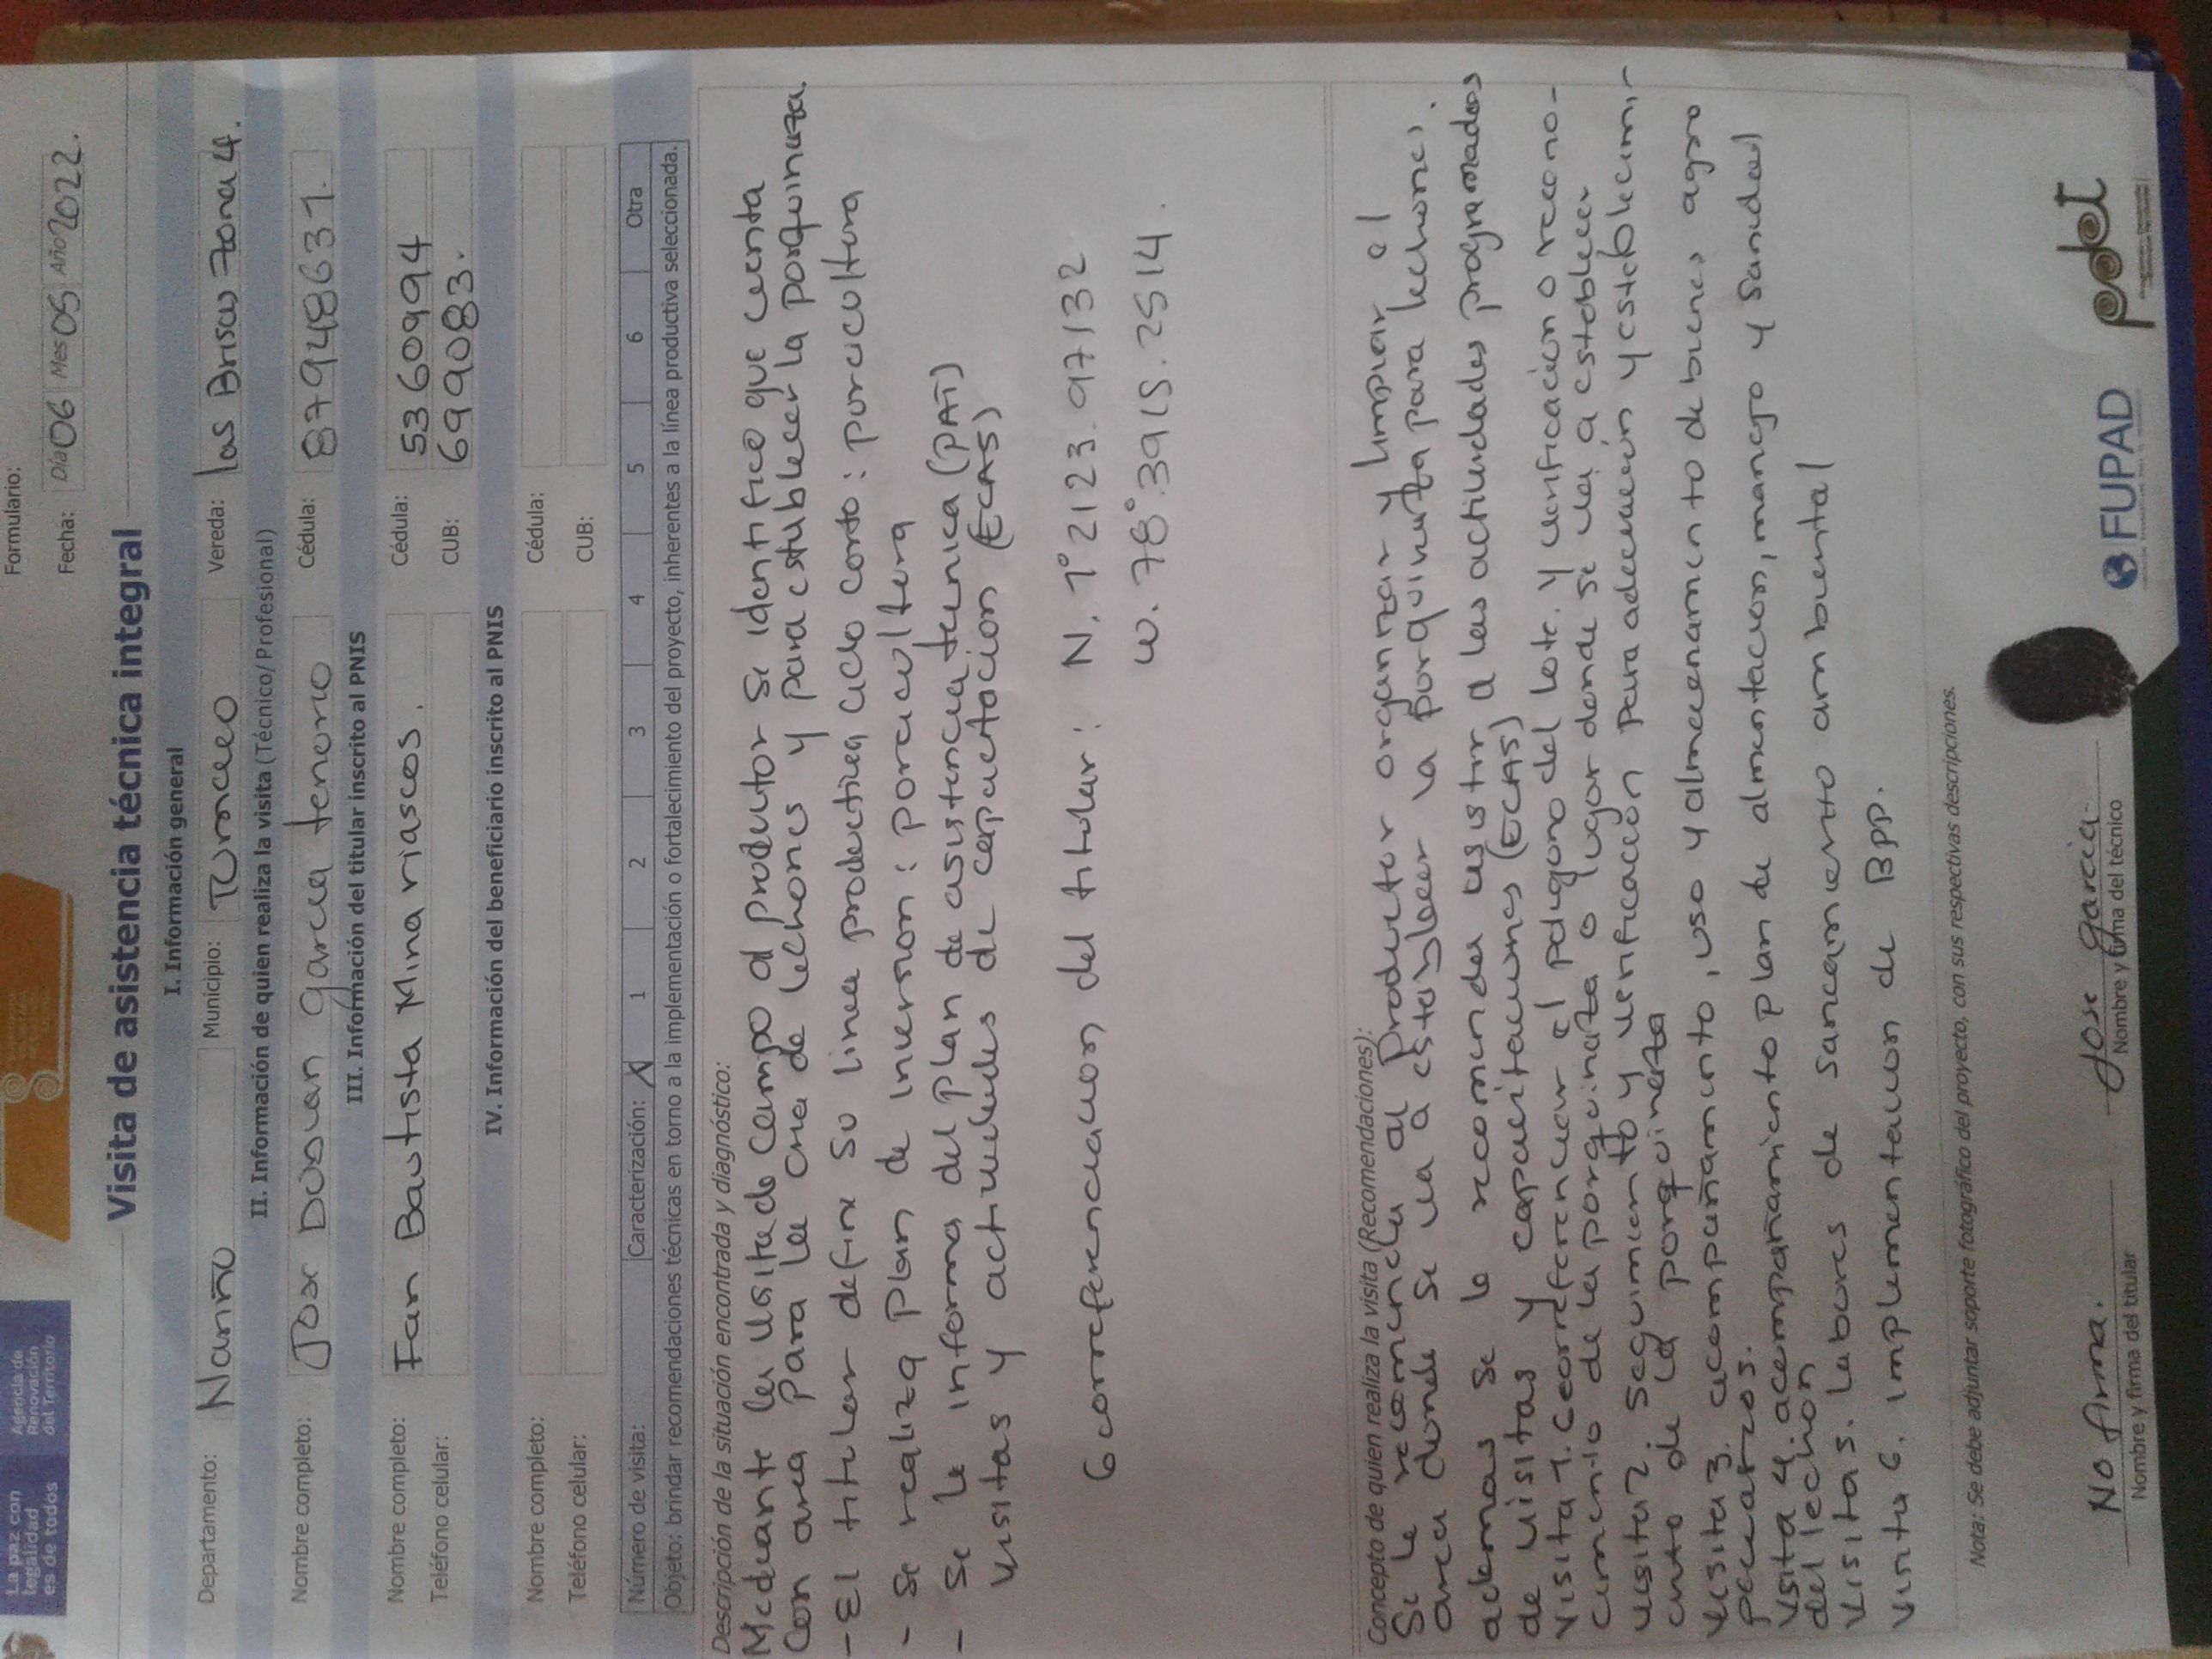 La paz con
legalidad
es de todos
Agencia de
Renovación
del Territorio
Formulario:
Fecha: Día 06 Mes 05 Año 2022.
Visita de asistencia técnica integral
I. Información general
Departamento: Nariño Municipio: Tumaco Vereda: las Brisas zona 4.
II. Información de quien realiza la visita (Técnico/ Profesional)
Nombre completo: Jose Duvan garcia tenorio Cédula: 87948631.
III. Información del titular inscrito al PNIS
Nombre completo: Fan Bautista Mina riascos. Cédula: 5360994
Teléfono celular: CUB: 699083.
IV. Información del beneficiario inscrito al PNIS
Nombre completo: Cédula:
Teléfono celular: CUB:
Número de visita: Caracterización: X 1 2 3 4 5 6 Otra
Objeto: brindar recomendaciones técnicas en torno a la implementación o fortalecimiento del proyecto, inherentes a la línea productiva seleccionada.
Descripción de la situación encontrada y diagnóstico:
Mediante la visita de campo al productor se identifico que centa
con area para la cria de lechones y para establecer la porquinaza.
- El titular define su linea productiva ciclo corto: porcicultura
- se realiza plan de inversion: porcicultura
- se le informa del plan de asistencia tecnica (PAT)
visitas y actividades de capacitacion (ECAS)
Georreferenciacion del titular: N. 1° 2123.97132
w. 78°.3915.2514.
Concepto de quien realiza la visita (Recomendaciones):
Se le recomienda al productor organizar y limpiar el
area donde se va a establecer la porquinaza para lechones.
ademas se le recomienda asistir a las actividades programadas
de visitas y capacitaciones (ECAS)
visita 1. Georreferenciar el poligono del lote. y verificacion o recono-
cimiento de la porquinaza o lugar donde se va a establecer
visita 2. seguimiento y verificación para adecuación y establecimi-
ento de la porquineza
visita 3. acompañamiento, uso y almacenamiento de buenas agro
pecuarios.
visita 4. acompañamiento plan de alimentacion, manejo y sanidad
del lechon
visita 5. labores de saneamiento ambiental
visita 6. implementacion de BPP.
Nota: Se debe adjuntar soporte fotográfico del proyecto, con sus respectivas descripciones.
No firma.
Nombre y firma del titular
Jose garcia
Nombre y firma del técnico
FUPAD
pdet